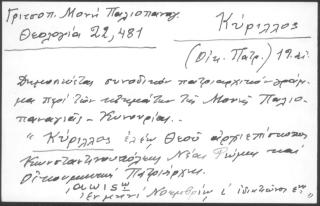 Γριτσοπ. Μονή Παλιοπαναγ.
Θεολογία 22, 481
Κύριλλος
(Οἰκ. Πατρ.) 19. αἰ.
Δημοσιεύεται συνοδικόν πατριαρχικόν γράμ-
μα περί τῶν κτημάτων τῆς Μονῆς Παλιο-
παναγιᾶς - Κυνουρίας. -
"Κύριλλος ἐλέῳ Θεοῦ ἀρχιεπίσκοπος
Κωνσταντινουπόλεως Νέας Ῥώμης καί
Οἰκουμενικός Πατριάρχης.
ἐν μηνί Νοεμβρίῳ